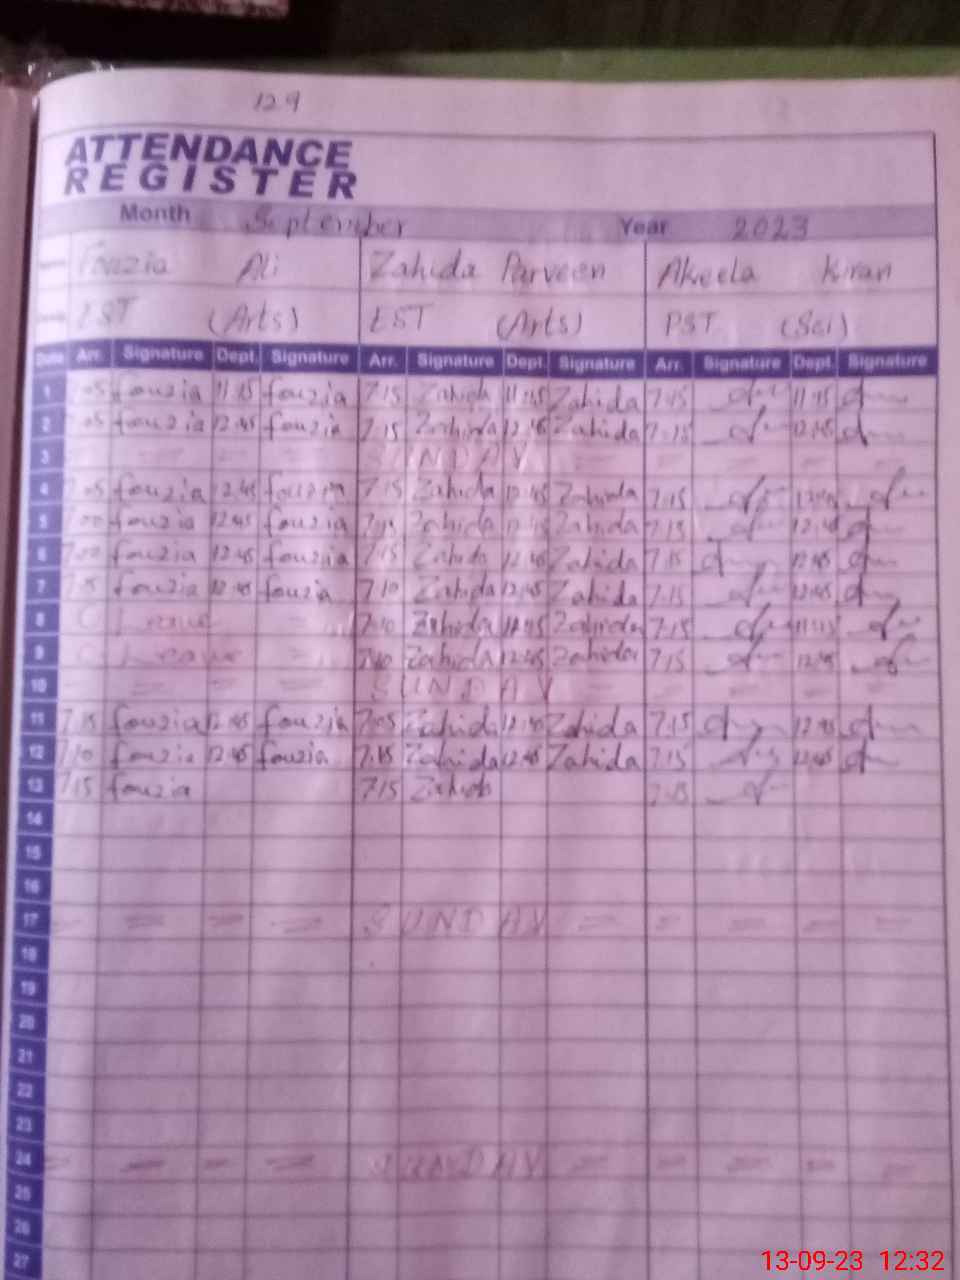 129
ATTENDANCE
REGISTER
Month September Year 2023
Fouzia Ali Zahida Parveen Akeela Kiran
EST (Arts) EST (Arts) PST (Sci)
Date Arr. Signature Dept. Signature Arr. Signature Dept. Signature Arr. Signature Dept. Signature
1 7.05 fouzia 11.45 fouzia 7.15 Zahida 11.45 Zahida 7.15 11.45
2 7.05 fouzia 12.45 fouzia 7.15 Zahida 12.45 Zahida 7.15 12.45
3 = = = = SUNDAY = = = = =
4 7.05 fouzia 12.45 fouzia 7.15 Zahida 12.45 Zahida 7.15
5 7.00 fouzia 12.45 fouzia 7.15 Zahida 12.45 Zahida 7.15 12.45
6 7.00 fouzia 12.45 fouzia 7.15 Zahida 12.45 Zahida 7.15 12.45
7 fouzia 12.45 fouzia 7.10 Zahida 12.45 Zahida 7.15 12.45
8 C Leave = 7.10 Zahida Zahida 7.15
9 C Leave = 7.10 Zahida 12.45 Zahida 7.15 12.45
10 = = = = SUNDAY = = = = =
11 7.15 fouzia 12.45 fouzia 7.05 Zahida 12.40 Zahida 7.15 12.45
12 7.10 fouzia 12.45 fouzia 7.15 Zahida 12.45 Zahida 7.15 12.45
13 7.15 fouzia 7.15 Zahida 7.15
14
15
16
17 = = = = SUNDAY = = = = =
18
19
20
21
22
23
24 = = = = SUNDAY = = = = =
25
26
27
13-09-23 12:32